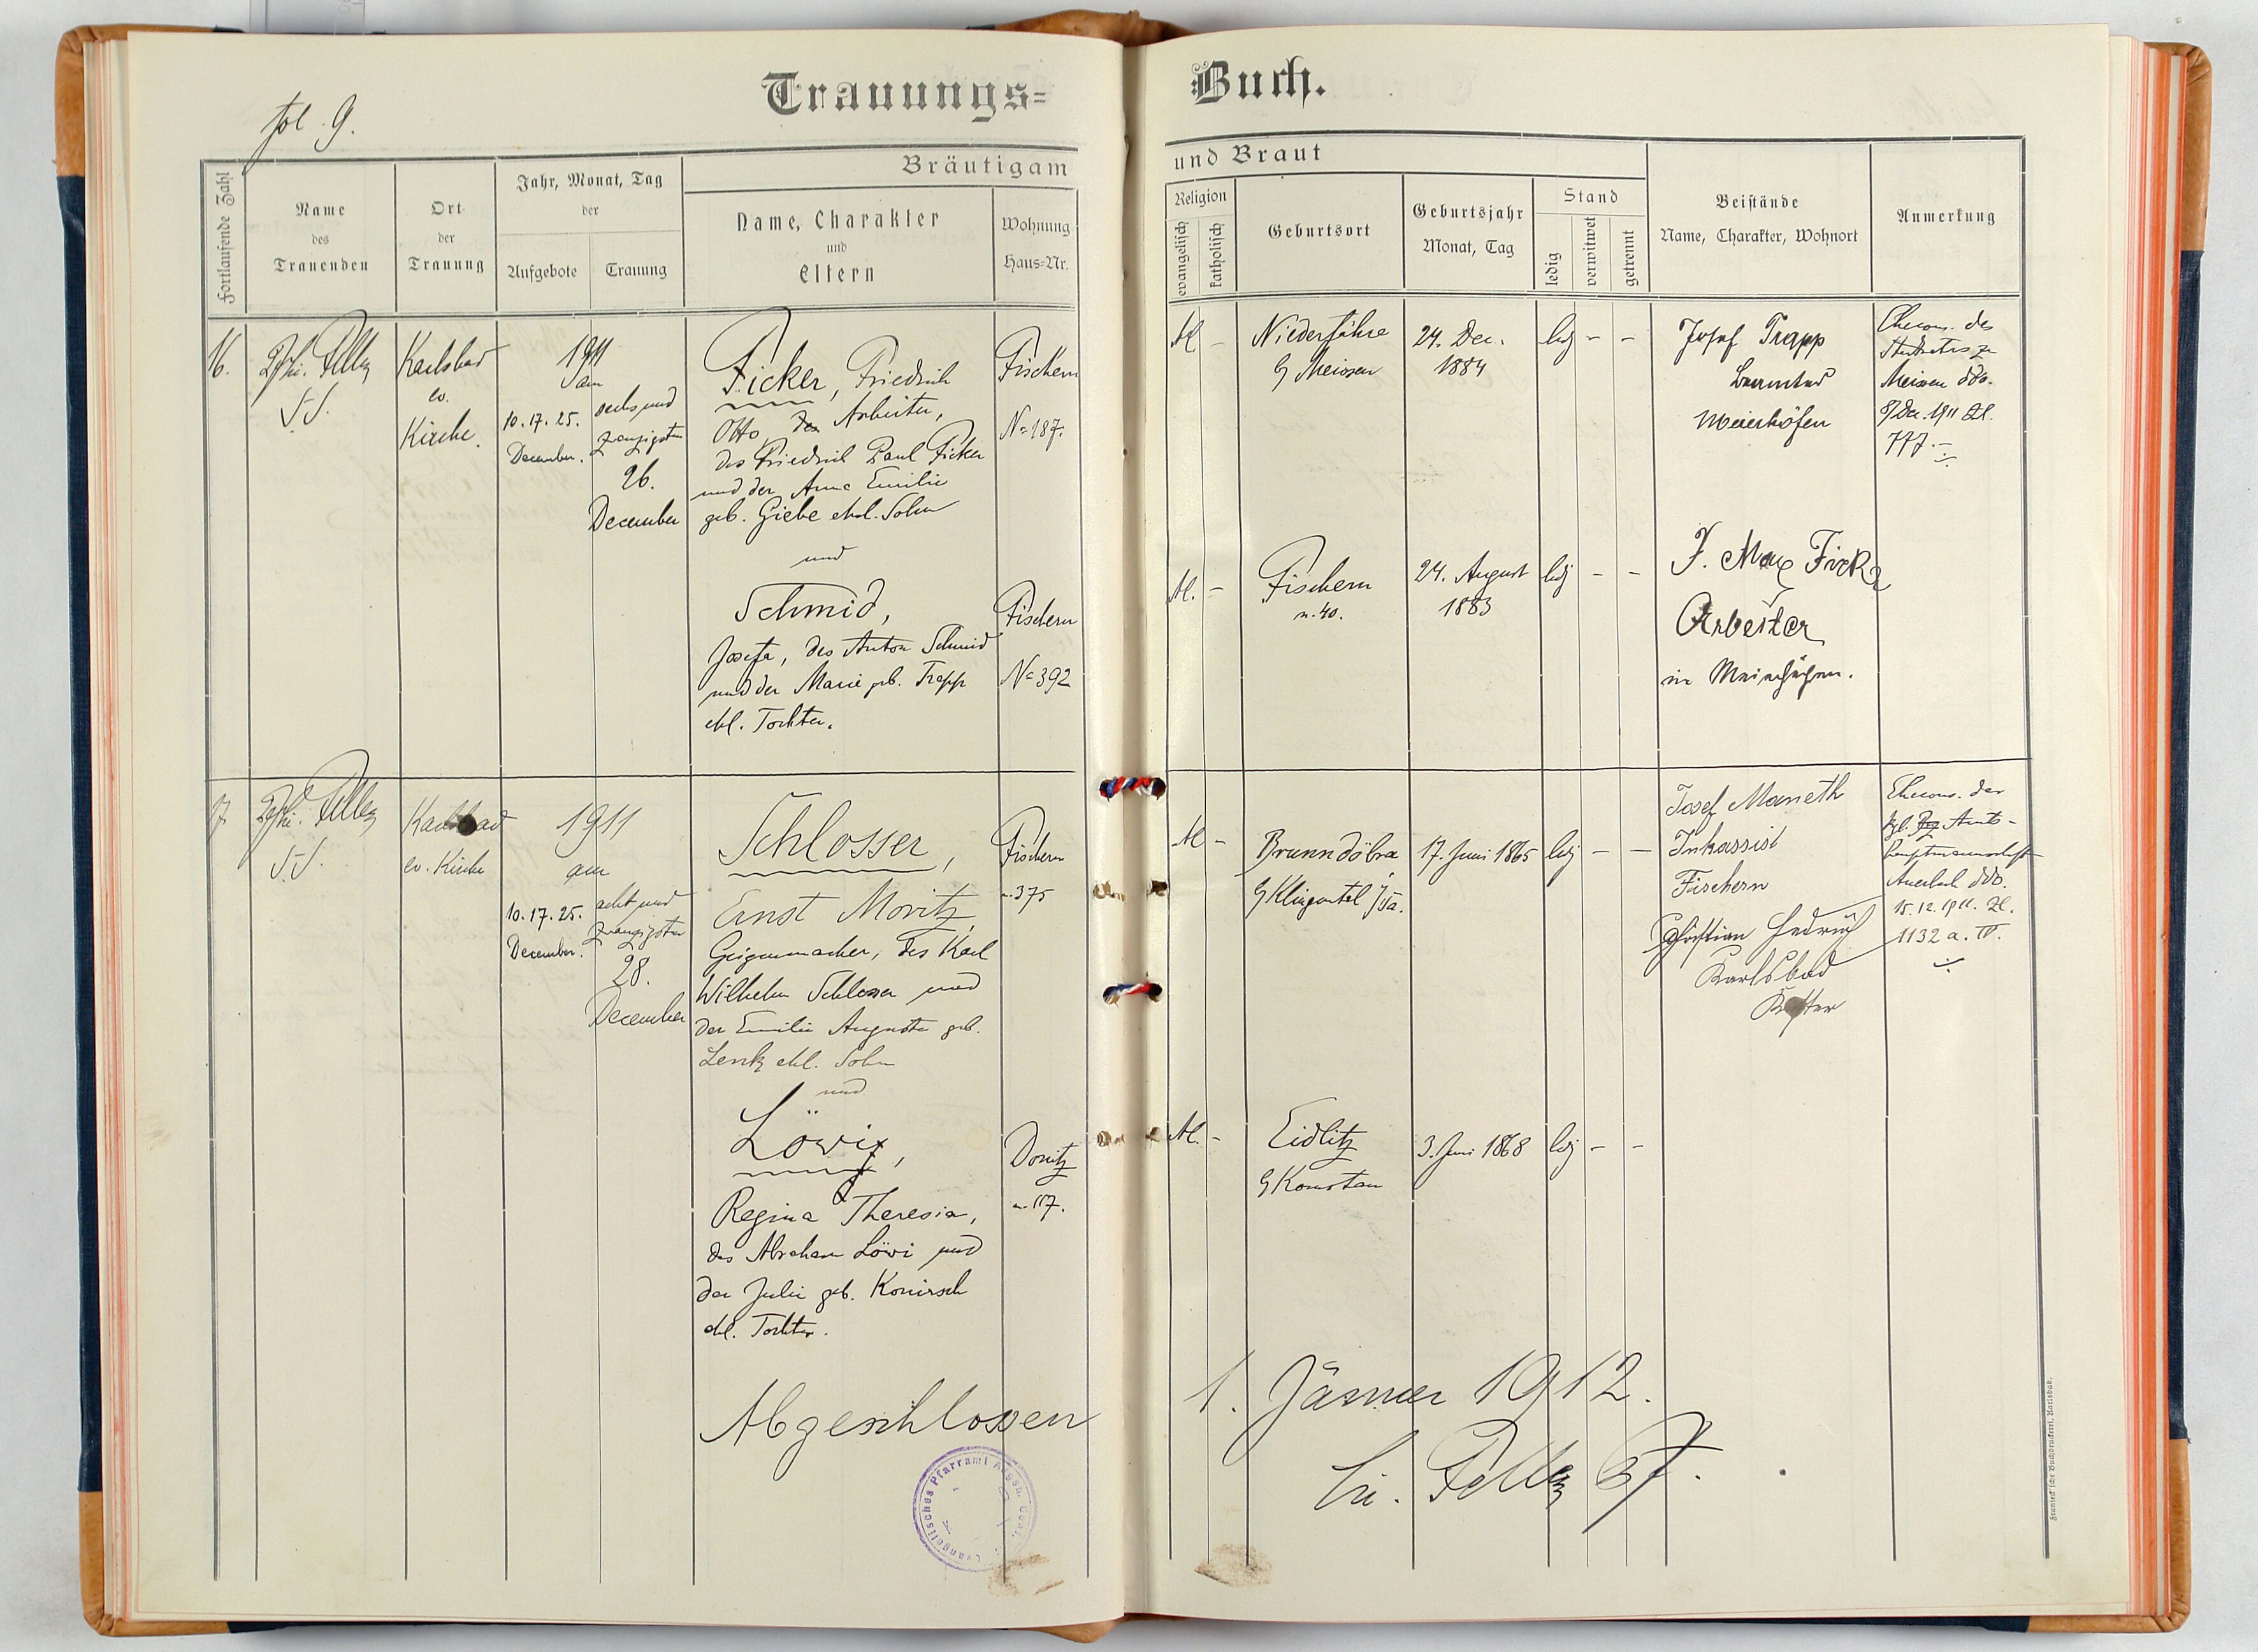 Trauungs=
Buch.
fol. 9.
Bräutigam
und Braut
Fortlaufende Zahl
Name
des
Trauenden
Ort
der
Trauung
Jahr, Monat, Tag
der
Aufgebote
Trauung
Name, Charakter
und
Eltern
Wohnung
Haus=Nr.
Religion
evangelisch
katholisch
Geburtsort
Geburtsjahr
Monat, Tag
Stand
ledig
verwitwet
getrennt
Beistände
Name, Charakter, Wohnort
Anmerkung
16.
Karlsbad
ev.
Kirche.
10. 17. 25.
December.
1911
am
sechs und
zwanzigsten
26.
December
Ficker, Friedrich
Otto Arbeiter,
des Friedrich Paul Ficker
und der Anna Emilie
geb. Giebe ehel. Sohn
und
Schmid,
Josefa, des Anton Schmid
und der Marie geb. Trapp
ehl. Tochter.
Fischern
No 187.
Fischern
No 392
Al. -
Niederfähre
G Meissen
24. Dec.
1884
ledj - -
Josef Trapp
Beamter
Meierhöfen
Ehecons. des
Stadtrates zu
Meissen ddo.
8/Dec. 1911 Zl.
777.-
Al. -
Fischern
n. 40.
24. August
1883
ledj - -
F. Max Ficker
Arbeiter
in Meierhöfen.
17.
Karlsbad
ev. Kirche
10. 17. 25.
December.
1911
am
acht und
zwanzigsten
28.
December
Schlosser,
Ernst Moritz,
Geigenmacher, des Karl
Wilhelm Schlosser und
der Emilie Auguste geb.
Lenk ehl. Sohn
und
Löwi,
Regina Theresia,
des Abraham Löwi und
der Julie geb. Konirsch
ehl. Tochter.
Fischern
n. 375
Donitz
n. 117.
Al -
Brunndöbra
G Klingental / Sa.
17. Juni 1865
ledj - -
Josef Maneth
Inkassist
Fischern
Christian Hedrich
Karlsbad
Küster
Ehecons. der
kgl. Amts-
hauptmannschaft
Auerbach ddo.
15. 12. 1911. Zl.
1132 a. IV.
Al. -
Eidlitz
G Komotau
3. Juni 1868
ledj - -
Abgeschlossen
1. Jänner 1912.
Evangelisches Pfarramt Augsb.